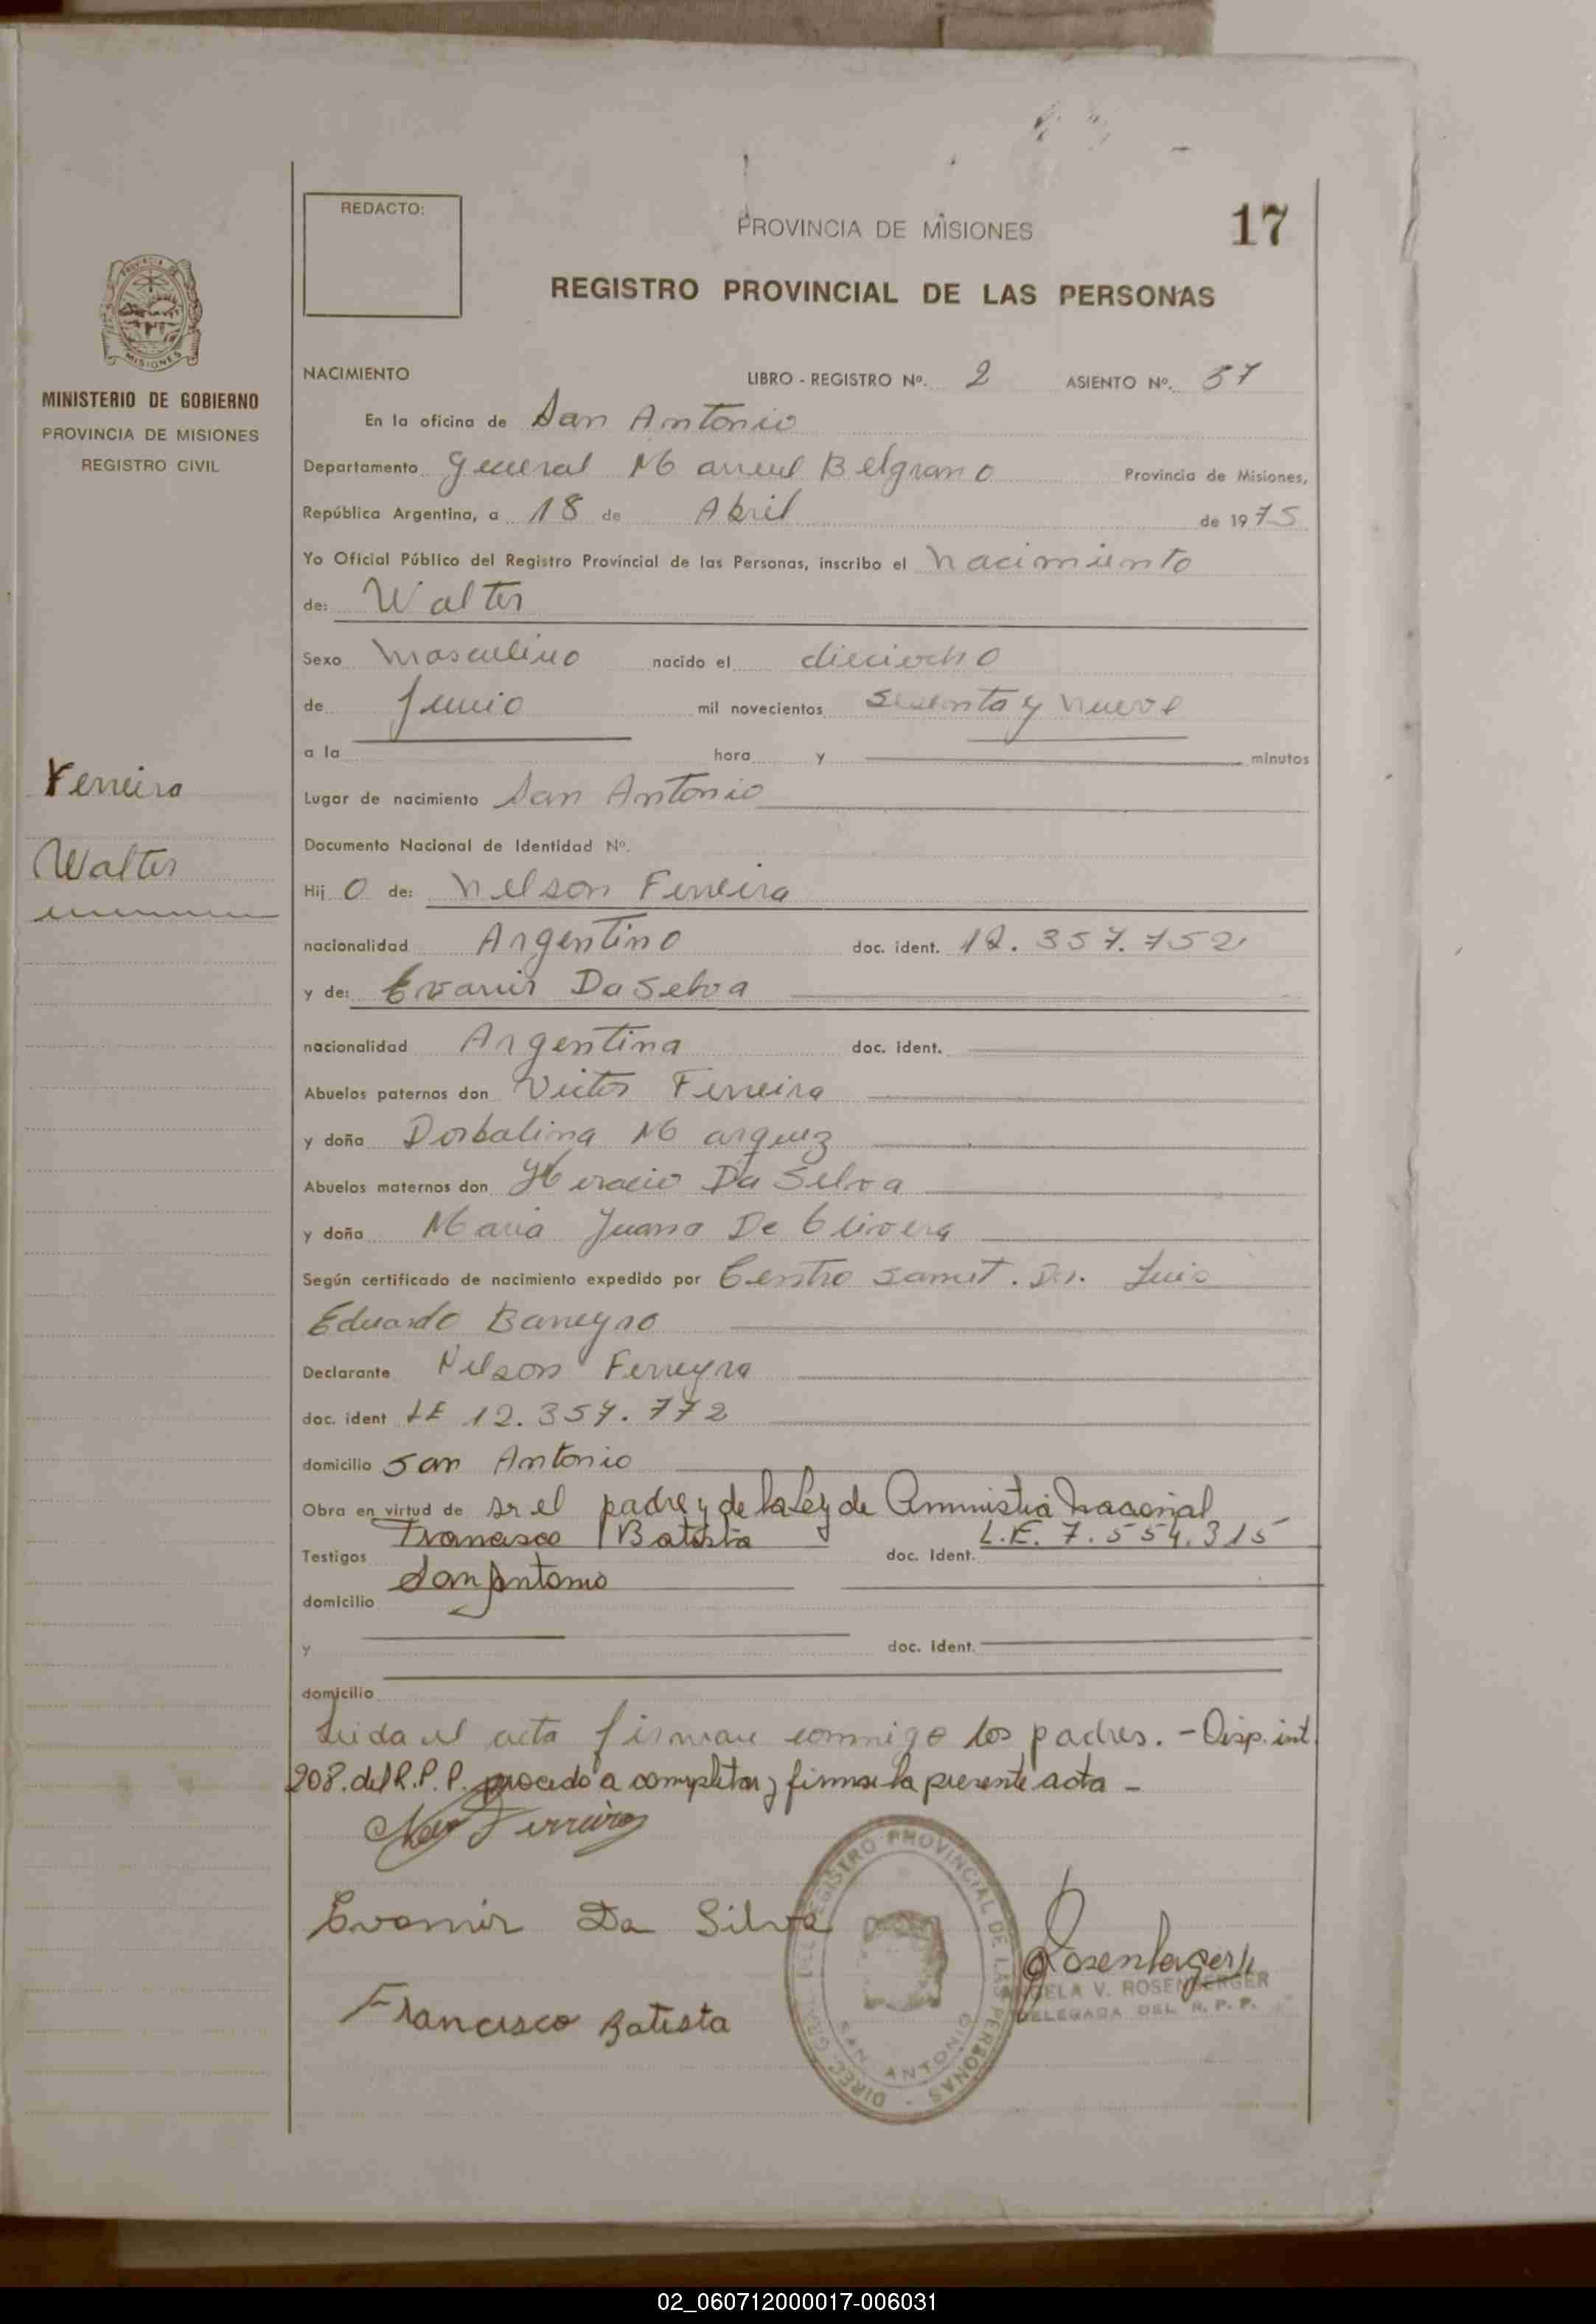 REDACTO:
PROVINCIA DE MISIONES
17
REGISTRO PROVINCIAL DE LAS PERSONAS
PROVINCIA DE
MISIONES
MINISTERIO DE GOBIERNO
PROVINCIA DE MISIONES
REGISTRO CIVIL
Ferreira
Walter
NACIMIENTO LIBRO - REGISTRO Nº. 2 ASIENTO Nº. 57
En la oficina de San Antonio
Departamento General Manuel Belgrano Provincia de Misiones,
República Argentina, a 18 de Abril de 1975
Yo Oficial Público del Registro Provincial de las Personas, inscribo el nacimiento
de: Walter
Sexo masculino nacido el dieciocho
de Junio mil novecientos sesenta y nueve
a la hora y minutos
Lugar de nacimiento San Antonio
Documento Nacional de Identidad Nº.
Hij o de: Nelson Ferreira
nacionalidad Argentino doc. ident. 12.357.752
y de: Evanir Da Selva
nacionalidad Argentina doc. ident.
Abuelos paternos don Victor Ferreira
y doña Dorbalina Marquez
Abuelos maternos don Horacio Da Selva
y doña Maria Juana De Olivera
Según certificado de nacimiento expedido por Centro Sanit. Dr. Luis
Eduardo Baneyro
Declarante Nelson Ferreyra
doc. ident LE 12.357.772
domicilio San Antonio
Obra en virtud de sr el padre y de la Ley de Amnistia Nacional
Testigos Francisco Batista doc. ident. L.E. 7.554.315
domicilio San Antonio
y doc. ident.
domicilio
Leida el acta firman conmigo los padres. - Disp. int.
208. del R.P.P. procedo a completar y firmar la presente acta -
Ferreira
Evanir Da Silva
Francisco Batista
DIREC. GRAL. DEL REGISTRO PROVINCIAL DE LAS PERSONAS
SAN ANTONIO
Rosenberger
ELA V. ROSENBERGER
DELEGADA DEL R. P. P.
02_060712000017-006031